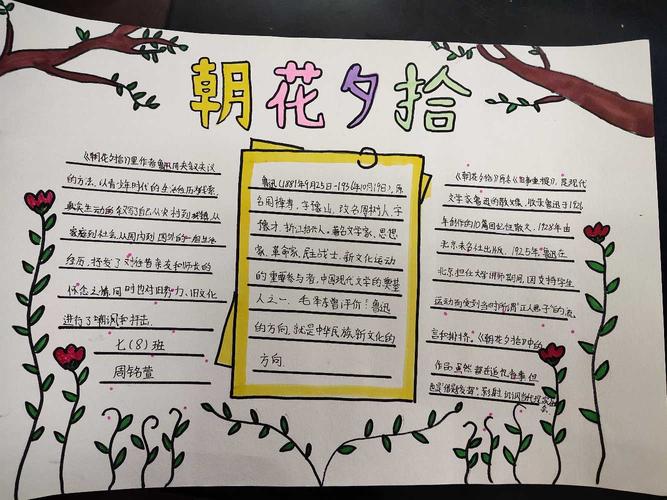 朝花夕拾
《朝花夕拾》里作者鲁迅用夹叙夹议
的方法,以青少年时代的生活经历为线索,
真实生动的叙写了自己从农村到城镇,从
家庭到社会,从国内到国外的一组生活
经历,抒发了对往昔亲友和师长的
怀念之情,同时也对旧势力、旧文化
进行了嘲讽和抨击.
七(8)班
周铭萱
鲁迅(1881年9月25日-1936年10月19日),原
名周樟寿,字豫山,改名周树人,字
豫才,浙江绍兴人,著名文学家、思想
家、革命家、民主战士,新文化运动
的重要参与者,中国现代文学的奠基
人之一.毛泽东曾评价:鲁迅
的方向,就是中华民族新文化的
方向.
《朝花夕拾》原名《旧事重提》,是现代
文学家鲁迅的散文集,收录鲁迅于1926
年创作的10篇回忆性散文,1928年由
北京未名社出版,1925年,鲁迅在
北京担任大学讲师期间,因支持学生
运动而受到当时所谓"正人君子"的流
言和排挤。《朝花夕拾》中的
作品虽然都在追忆往事,但
也是"借题发挥",影射